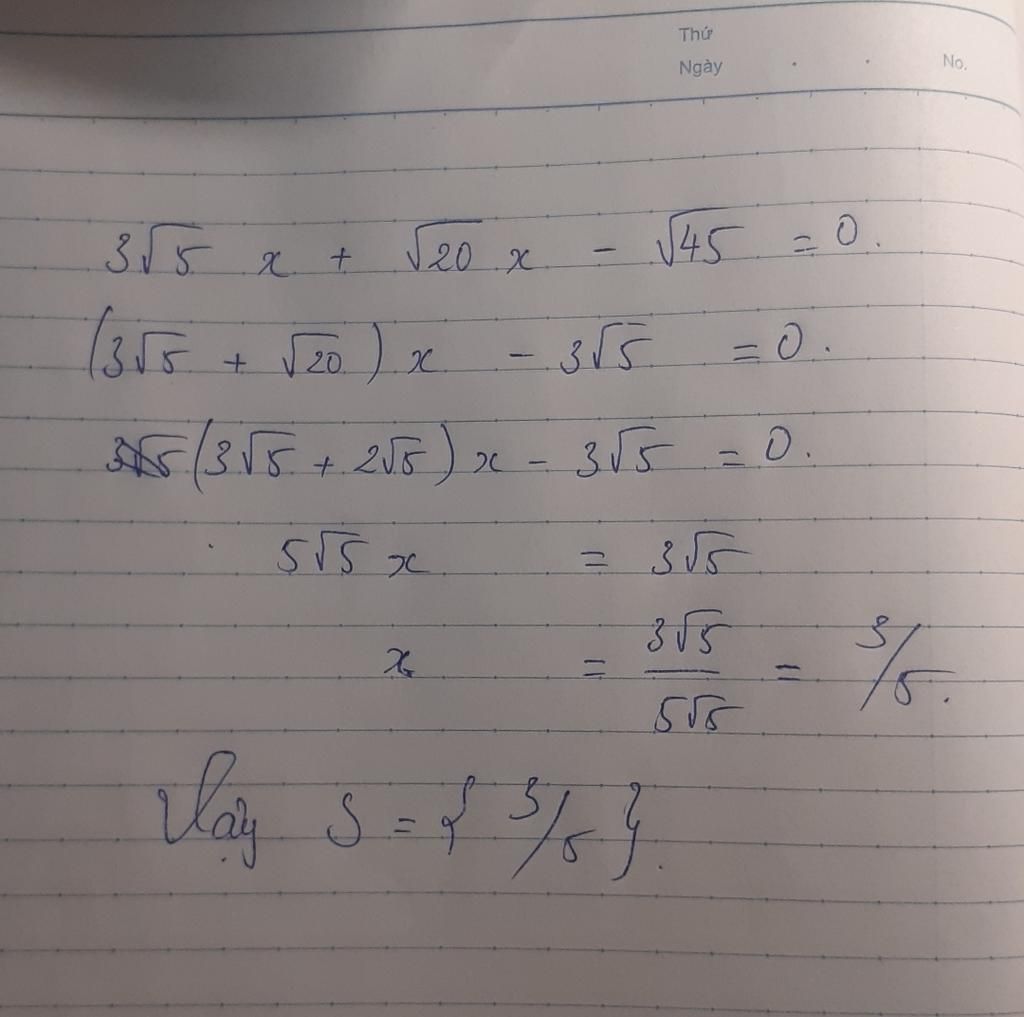 Thứ
Ngày . . No.
3√5 x + √20 x - √45 = 0.
(3√5 + √20) x - 3√5 = 0.
(3√5 + 2√5) x - 3√5 = 0.
5√5 x = 3√5
x = 3√5/5√5 = 3/5.
Vậy S = {3/5}.